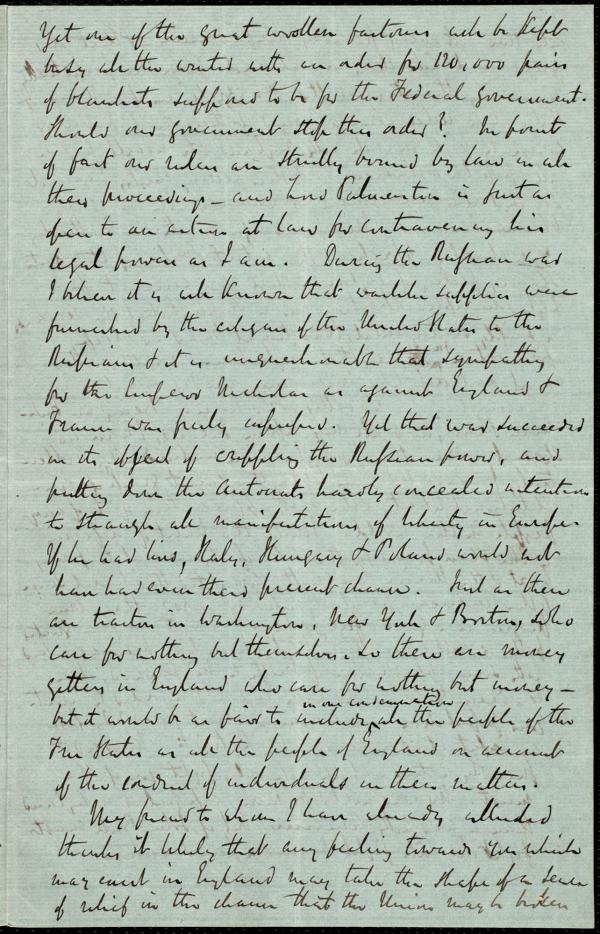 Yet one of the great woollen factories will be kept
busy all the winter with an order for 120,000 pairs
of blankets supposed to be for the Federal government.
Should our government stop this order? In point
of fact our rulers are strictly bound by law in all
their proceedings - and Lord Palmerston is just as
open to an action at law for contravening his
legal powers as I am. During the Russian war
I believe it is well known that warlike supplies were
furnished by the citizens of the United States to the
Russians & it is unquestionable that sympathy
for the Emperor Nicholas as against England &
France was freely expressed. Yet that war succeeded
in its object of crippling the Russian power, and
putting down the Autocrats hardly concealed intention
to strangle all manifestations of liberty in Europe.
If he had lived, Italy, Hungary & Poland would not
have had even their present chance. Just as there
are traitors in Washington, New York & Boston, who
care for nothing but themselves, so there are money
getters in England who care for nothing but money -
but it would be as fair to include in one condemnation all the people of the
Free States as all the people of England on account
of the conduct of individuals in these matters.
My friend to whom I have already alluded
thinks it likely that any feeling towards you which
may exist in England may take the shape of a sense
of relief in the chance that the Union may be broken